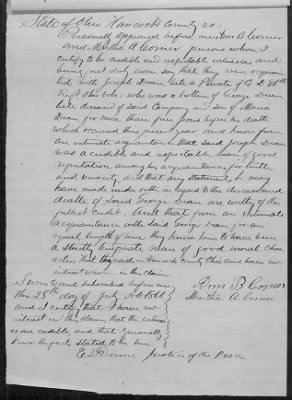 State of Ohio Hancock County ss.
Personally appeared before me Ann B Connor
and Martha A Connor persons whom I
certify to be credible and respectable witnesses and
being duly sworn say that they were acquain
ted with Joseph Dean late a Private of Co I
Regt Ohio Vols who was a brother of George Dean
late deceased of Said Company and son of Maria
Dean for more than five years before his death
which occurred this present year and know from
an intimate acquaintance that Said Joseph Dean
was a credible and respectable man of good
reputation among his acquaintances for truth
and veracity and that any Statements he may
have made under oath in regard to the disease and
death of Said George Dean are worthy of the
fullest credit. And that from an intimate
acquaintance with Said George Dean for an
equal length of time they know him to have been
a Strictly temperate man of good moral Char
acter that they reside in Hancock County Ohio and have no
interest whatever in this claim
Sworn and Subscribed before me
this 28th day of July AD 1866
and I certify that I have no
interest in this claim, that the witnesses
are credible and that I personally
know the facts stated to be true
Ann B Connor
Martha A. Connor
Justice of the Peace